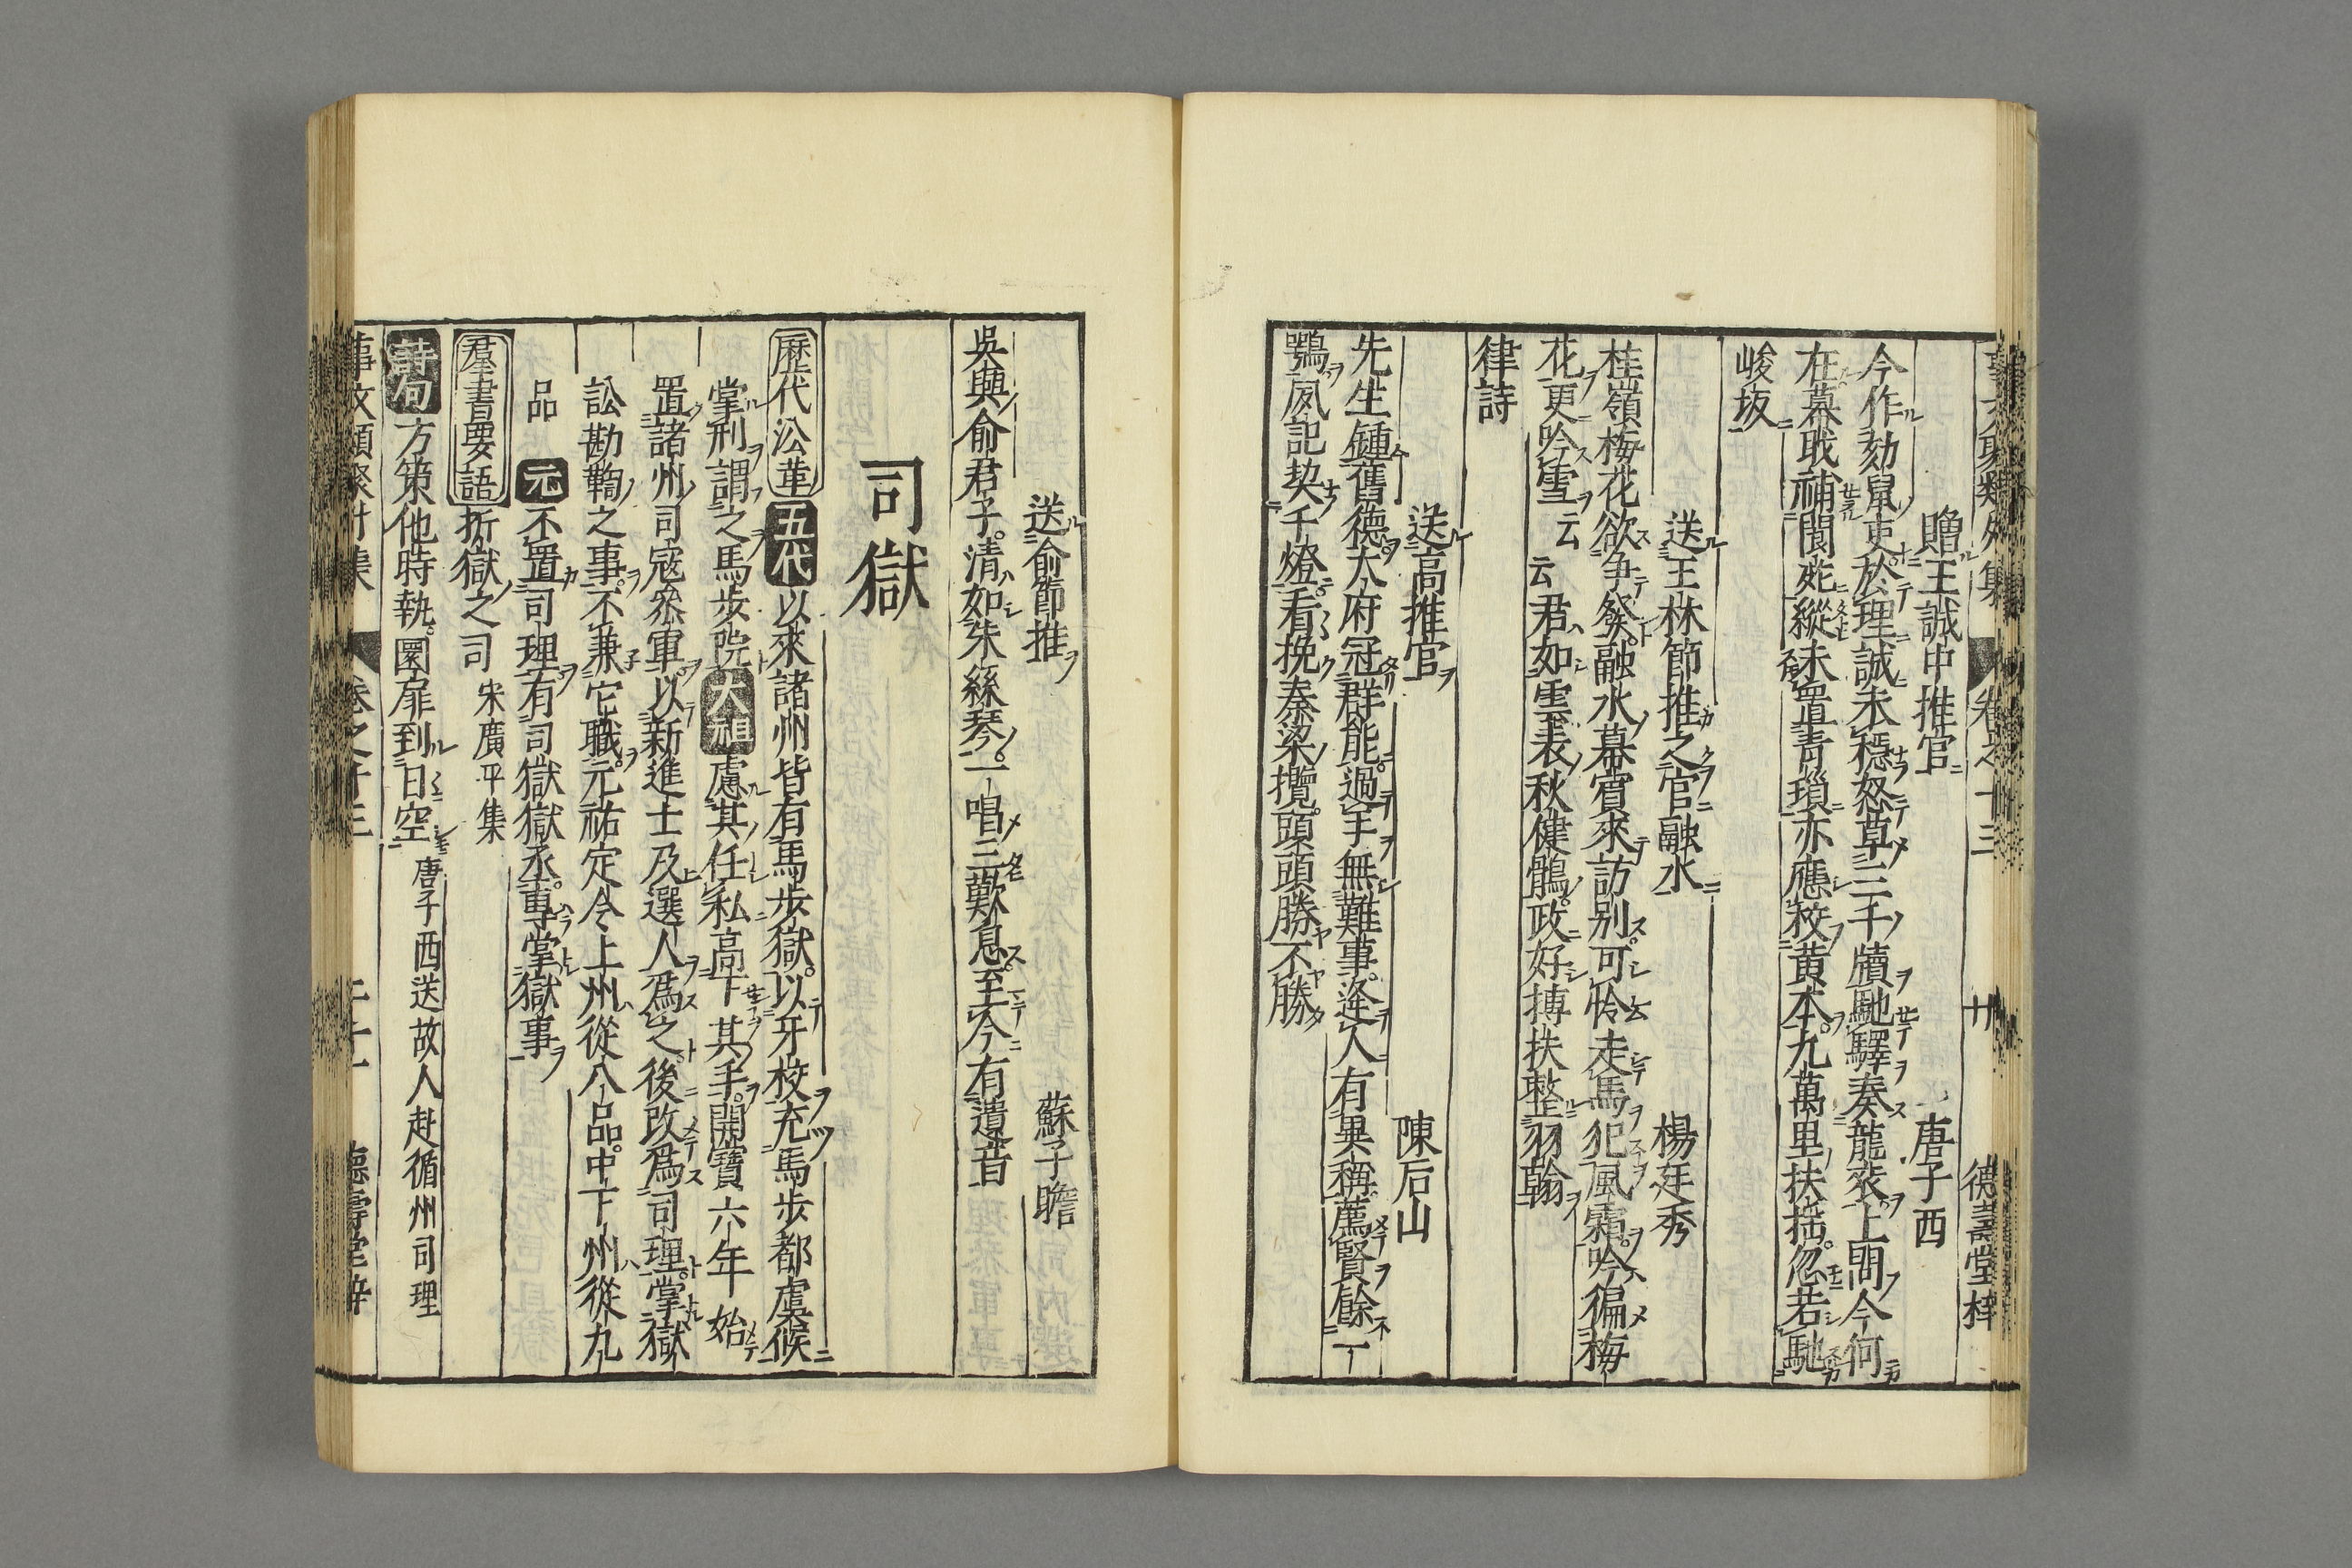 贈王誠中推官 唐子西
今作劾鼠吏於理誠未穩怒草三千牘馳驛奏龍袞上問今何
在幕戢補閬苑縱未賓青瑣亦應校黃本九萬里扶搖忽若馳
峻坂
送王林節推之官融水 楊廷秀
桂嶺梅花欲爭發融水幕賓來訪别可怜走馬犯風霜吟徧梅
花更吟雪云云君如雲表秋健鶻政好摶扶整羽翰
律詩
送高推官 陳后山
先生鍾舊德大府冠群能過手無難事逢人有異稱薦賢餘一
鶚夙記契千燈看挽秦梁攬頭頭勝不勝
送俞節推 蘇子瞻
吳興俞君子清如朱絲琴一唱三歎息至今有遺音
司獄
歷代沿革 五代以來諸州皆有馬步獄以牙校充馬步都虞候
掌刑謂之馬步院 太祖慮其任私高下其手開寶六年始
置諸州司寇叅軍以新進士及選人爲之後改爲司理掌獄
訟勘鞫之事不兼它職元祐定令上州從八品中下州從九
品 元不置司理有司獄獄丞專掌獄事
羣書要語 折獄之司 宋廣平集
詩句 方策他時執圜扉到日空 唐子西送故人赴循州司理